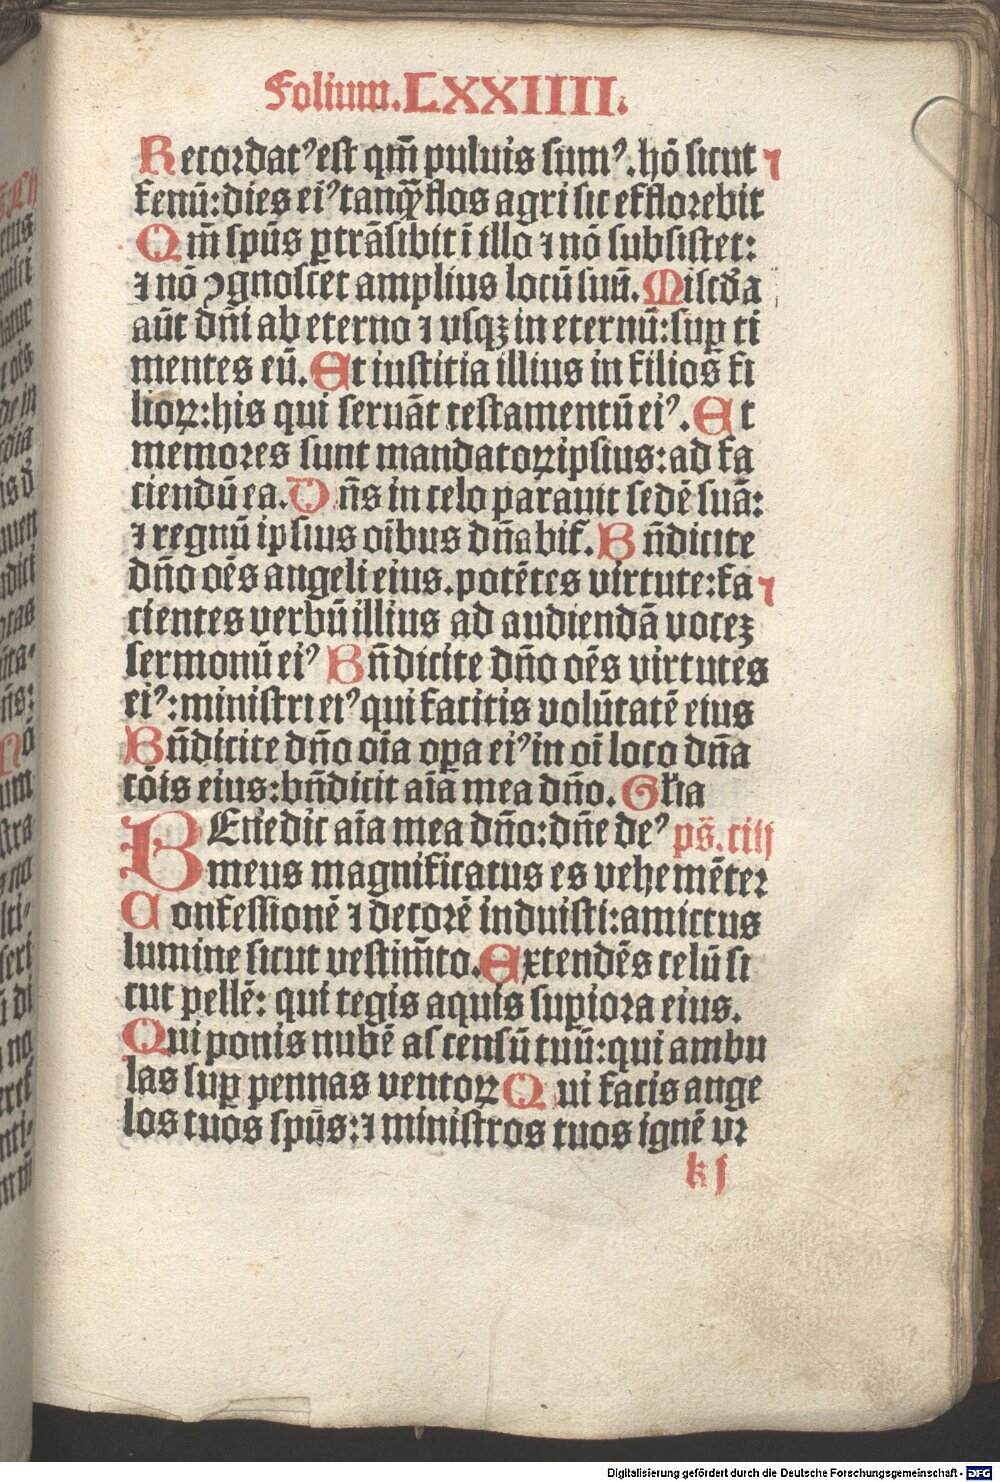 Folium. LXXIIII.
Recordatꝰ est qm̄ puluis sumꝰ. hō sicut ⁊
fenū: dies eiꝰ tanqȝ flos agri sic efflorebit
Qm̄ spūs ꝑtrāsibit ī illo ⁊ nō subsistet:
⁊ nō ꝯgnoscet amplius locū suū. Miscd̄a
aūt dn̄i ab eterno ⁊ vsqꝫ in eternū: suꝑ ti
mentes eū. Et iustitia illius in filios fi
lioꝝ: his qui seruāt testamentū eiꝰ. Et
memores sunt mandatoꝝ ipsius: ad fa
ciendū ea. Dn̄s in celo parauit sedē suā:
⁊ regnū ipsius oībus dn̄abit̉. Bn̄dicite
dn̄o oēs angeli eius. potētes virtute: fa ⁊
cientes verbū illius ad audiendā voceꝫ
sermonū eiꝰ Bn̄dicite dn̄o oēs virtutes
eiꝰ: ministri eiꝰ qui facitis volūtatē eius
Bn̄dicite dn̄o oīa oꝑa eiꝰ in oī loco dn̄a
tōis eius: bn̄dicit aīa mea dn̄o. Gl̄ia
BEn̄edic aīa mea dn̄o: dn̄e deꝰ ps̄. ciij
meus magnificatus es vehemēter
Confessionē ⁊ decorē induisti: amictus
lumine sicut vestim̄to. Extendēs celū si
cut pellē: qui tegis aquis suꝑiora eius.
Qui ponis nubē ascensū tuū: qui ambu
las suꝑ pennas ventoꝝ Qui facis ange
los tuos spūs: ⁊ ministros tuos ignē vr
k j
Digitalisierung gefördert durch die Deutsche Forschungsgemeinschaft - DFG